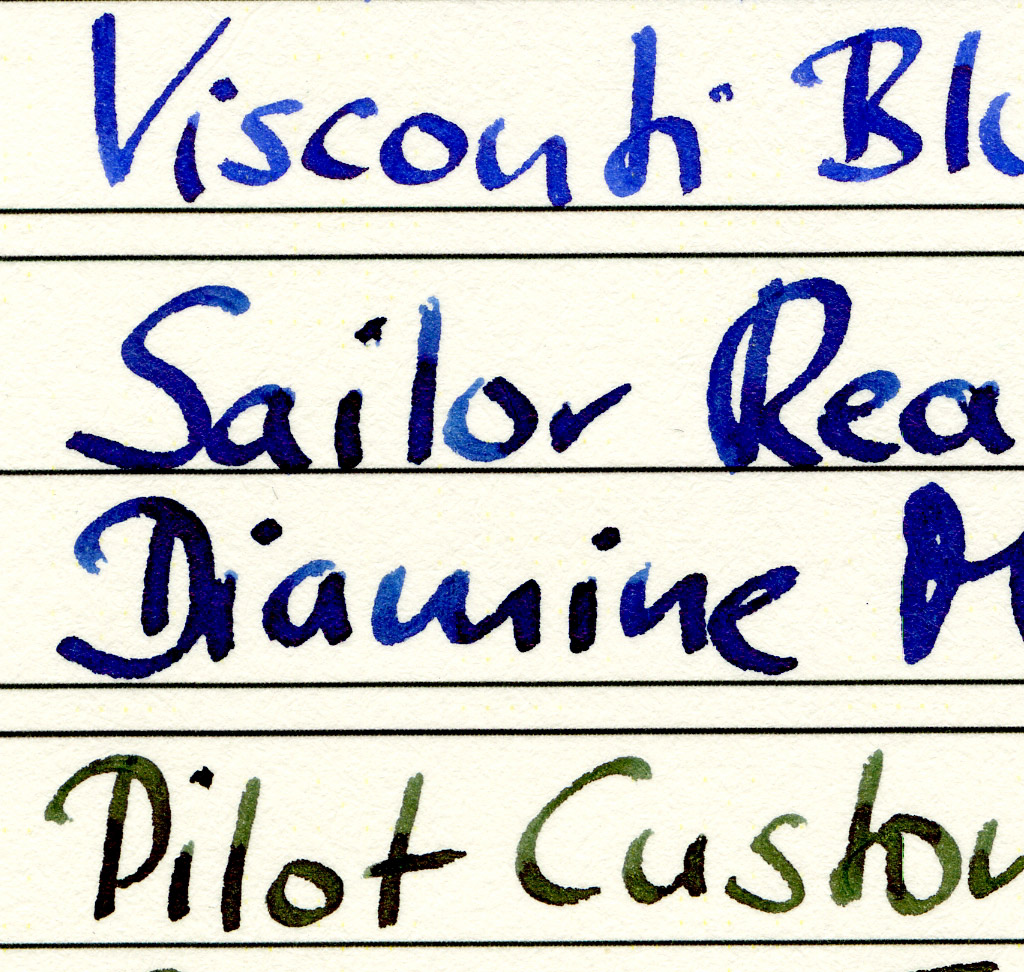 Visconti Blu
Sailor Rea
Diamine M
Pilot Custom